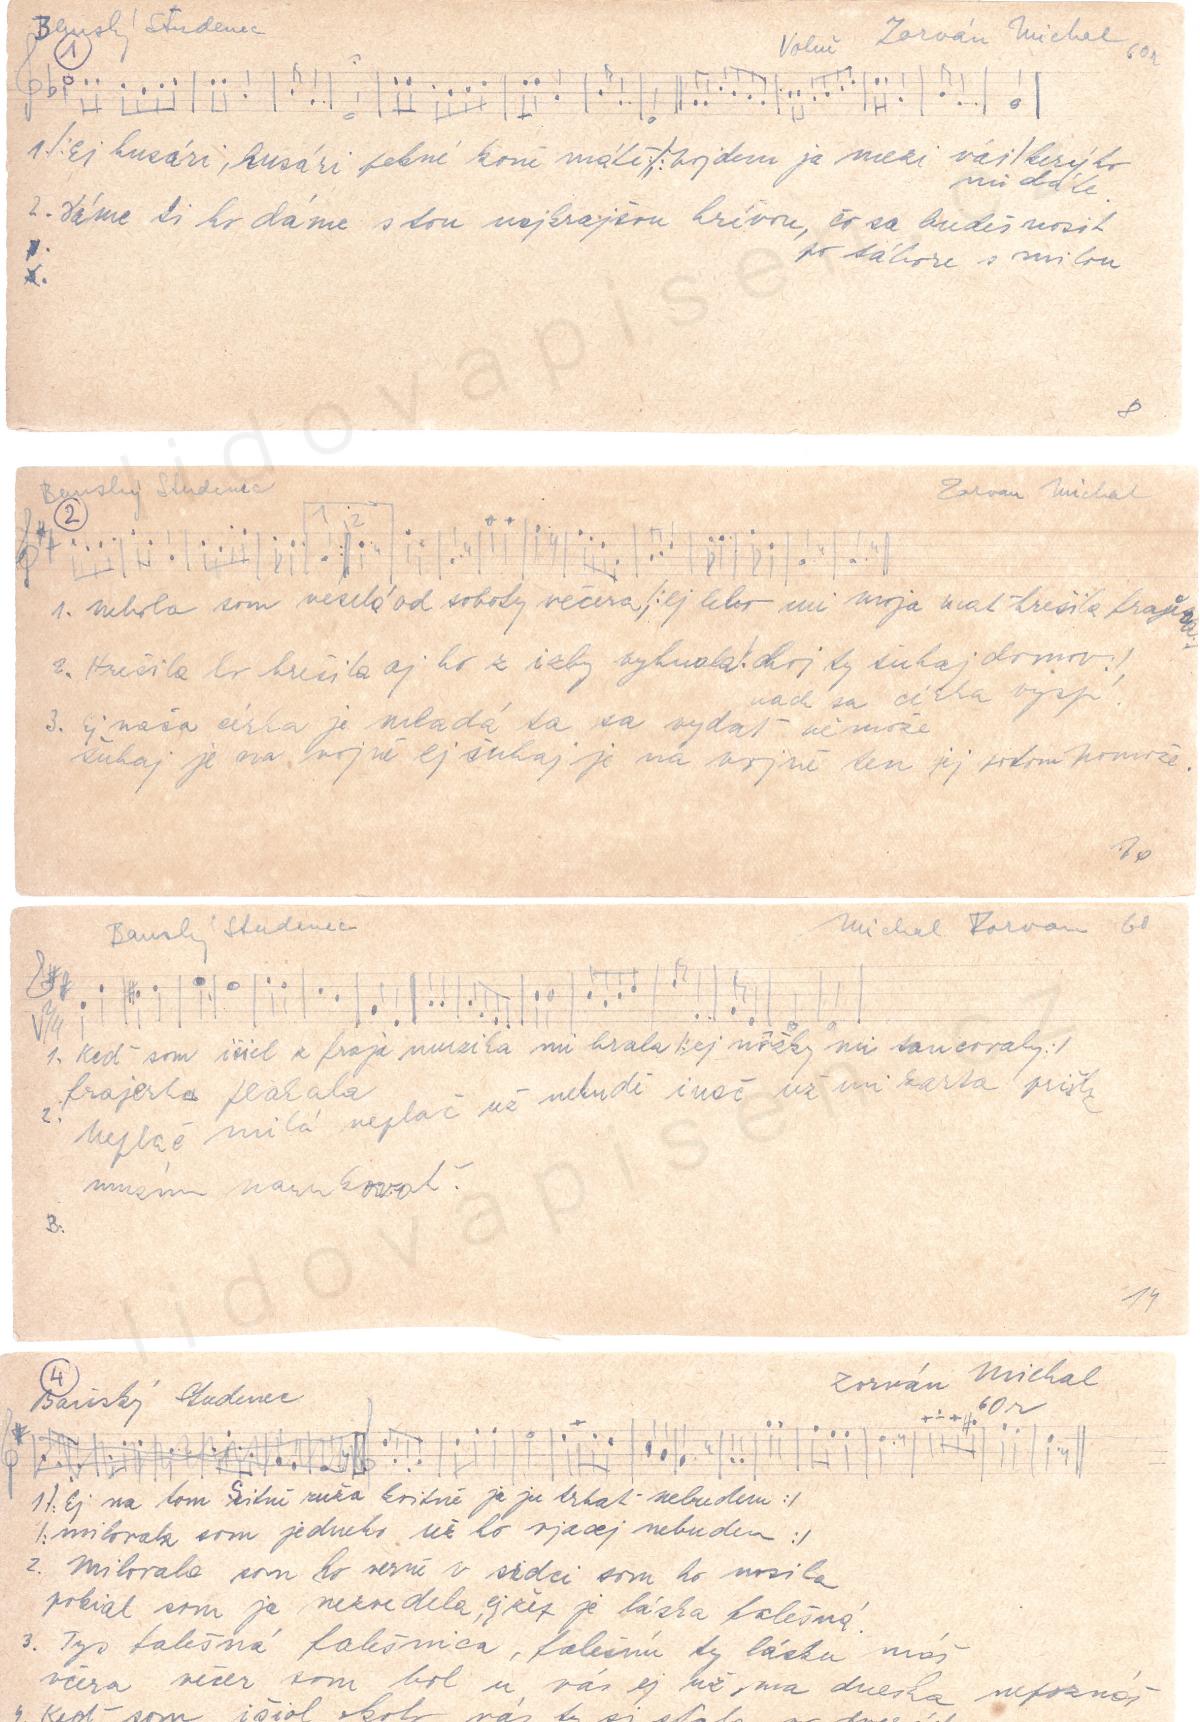 Banský Studenec
1
Volně Zorván Michal 60r
1. /: Ej husári, husári pekné koně máte :/ /: vojdem ja mezi vás / kerýho
mi dáte.
2. Dáme ti ho dáme s tou najkrajšou hrívou, čo sa budeš nosit
po tábore s milou
8
Banský Studenec Zorvan Michal
2
1 2
1. Nebola som veselá od soboty večera /: ej lebo mi moja mať hrešila
2. Hrešila ho hrešila aj ho z izby vyhnala /: choj ty šuhaj domov :/
nach sa cérka vyspí
3. Ej naša cérka je mladá ta sa vydať němože
šuhaj je na vojně ej šuhaj je na vojně ten jej potom pomože.
10
Banský Studenec Michal Zorvan 60
2/4
1. Keď som išiel z fraja muzika mi hrala /: ej nôžky mi tancovaly :/
frajerka plakala
2. Neplač milá neplač už nebudě inač už mi karta prišla
musím narukovať.
3.
14
4
Banský Studenec Zorván Michal
60r
1. /: Ej na tom Sitně ruža kvitně ja ju trhať nebudem :/
/: milovala som jedneho už ho vjacej nebudem :/
2. Milovala som ho verně v srdci som ho nosila
pokial som ja nezvedela, ej že je láska falešná.
3. Tys falešná falešnica, falešnú ty lásku máš
včera večer som bol u vás ej už ma dneska nepoznáš
4. Keď som išiol okolo vás ty si stála
lidovapisen.cz
lidovapisen.cz